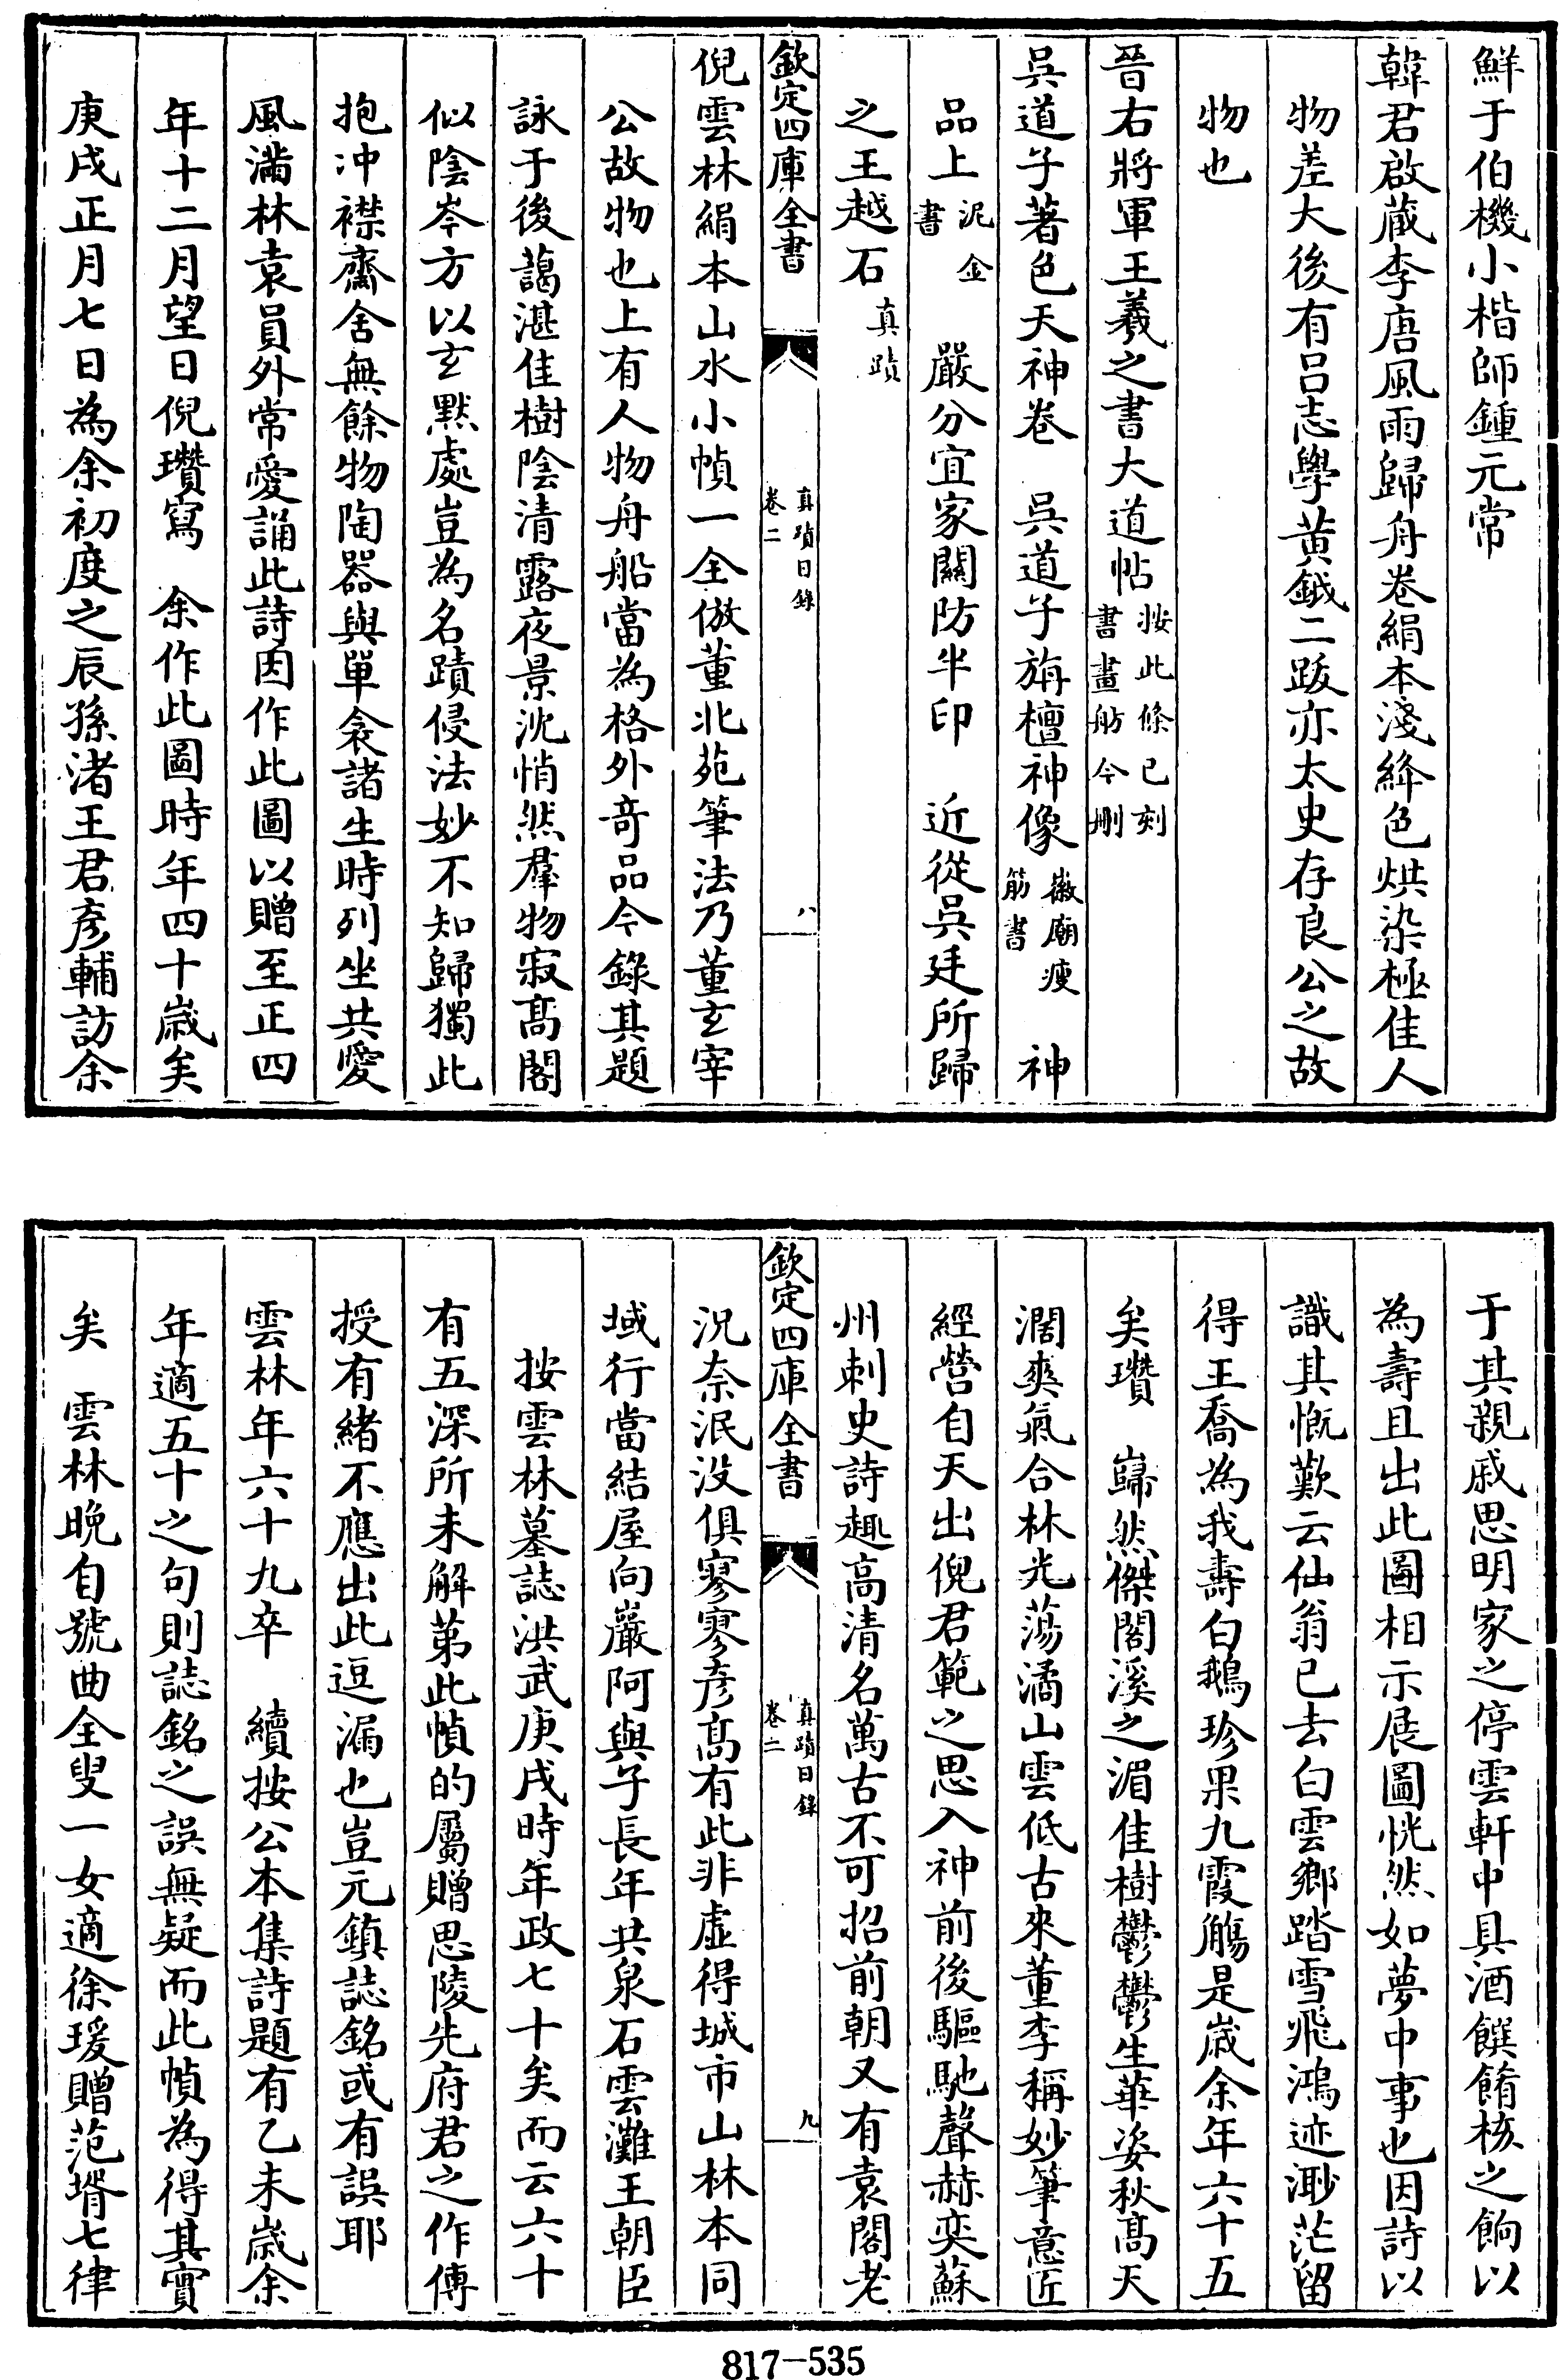 鮮于伯機小楷師鍾元常
韓君啟蔵李唐風雨歸舟卷絹本淺絳色烘染極佳人
物差大後有呂志學黄鉞二跋亦太史存良公之故
物也
晉右將軍王羲之書大道帖按此條已刻書畫舫今刪
吳道子著色天神卷　吳道子旃檀神像徽廟瘦筋書　神
品上泥金書　嚴分宜家關防半印　近從吳廷所歸
之王越石真蹟
欽定四庫全書　真蹟日錄卷二　八
倪雲林絹本山水小幀一全倣董北苑筆法乃董玄宰
公故物也上有人物舟船當為格外竒品今錄其題
詠于後藹湛佳樹陰清露夜景沈悄然羣物寂髙閣
似陰岑方以玄黙處豈為名蹟侵法妙不知歸獨此
抱冲襟齋舍無餘物陶器與單衾諸生時列坐共愛
風滿林袁員外常愛誦此詩因作此圖以贈至正四
年十二月望日倪瓚寫　余作此圖時年四十嵗矣
庚戌正月七日為余初度之辰孫渚王君彦輔訪余
于其親戚思明家之停雲軒中具酒饌餚核之餉以
為壽且出此圖相示展圖恍然如夢中事也因詩以
識其慨歎云仙翁已去白雲鄉踏雪飛鴻迹渺茫留
得王喬為我壽白鵝珍果九霞觴是嵗余年六十五
矣瓚　巋然傑閣溪之湄佳樹鬱鬱生華姿秋髙天
濶爽氣合林光蕩潏山雲低古來董李稱妙筆意匠
經營自天出倪君範之思入神前後驅馳聲赫奕蘇
州刺史詩趣高清名萬古不可招前朝又有袁閣老
欽定四庫全書　真蹟日錄卷二　九
況奈泯没俱寥寥彦髙有此非虚得城市山林本同
域行當結屋向巖阿與子長年共泉石雲灘王朝臣
按雲林墓誌洪武庚戌時年政七十矣而云六十
有五深所未解第此幀的屬贈思陵先府君之作傳
授有緒不應出此逗漏也豈元鎮誌銘或有誤耶
雲林年六十九卒　續按公本集詩題有乙未嵗余
年適五十之句則誌銘之誤無疑而此幀為得其實
矣　雲林晚自號曲全叟一女適徐瑗贈范壻七律
817—535